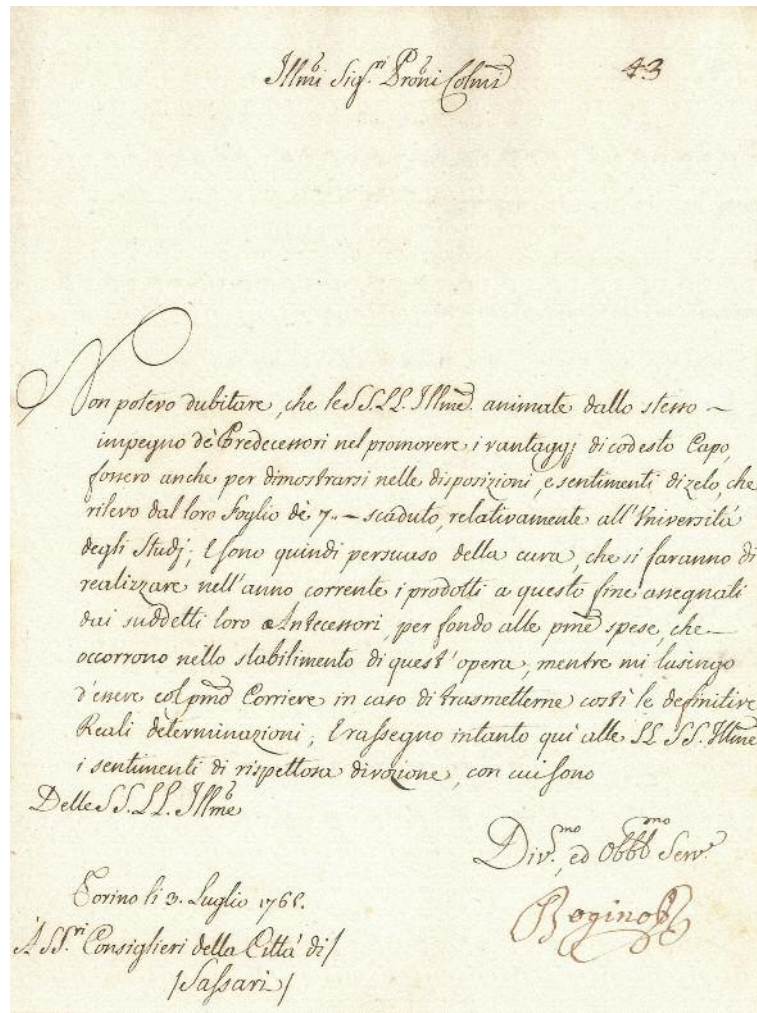 Illmi Sig.ri Proni Colmi 43
Non potevo dubitare, che le SS.LL. Illme. animate dallo stesso
impegno dè Predecessori nel promovere i vantaggj di codesto Capo,
fossero anche per dimostrarsi nelle disposizioni, e sentimenti di zelo, che
rilevo dal loro Foglio dè 7. scaduto, relativamente all'Università
degli Studj; E sono quindi persuaso della cura, che si faranno di
realizzare nell'anno corrente i prodotti a questo fine assegnati
dai suddetti loro Antecessori, per fondo alle pme spese, che
occorrono nello stabilimento di quest'opera, mentre mi lusingo
d'essere col pmo Corriere in caso di trasmetterne costì le definitive
Reali determinazioni; E rassegno intanto quì alle LL SS. Illme
i sentimenti di rispettosa divozione, con cui sono
Delle SS. LL. Illme
Div.mo, ed Obbl.mo Serv.e
Torino li 3. Luglio 1765.
Bogino
A SS.ri Consiglieri della Città di/
/Sassari/